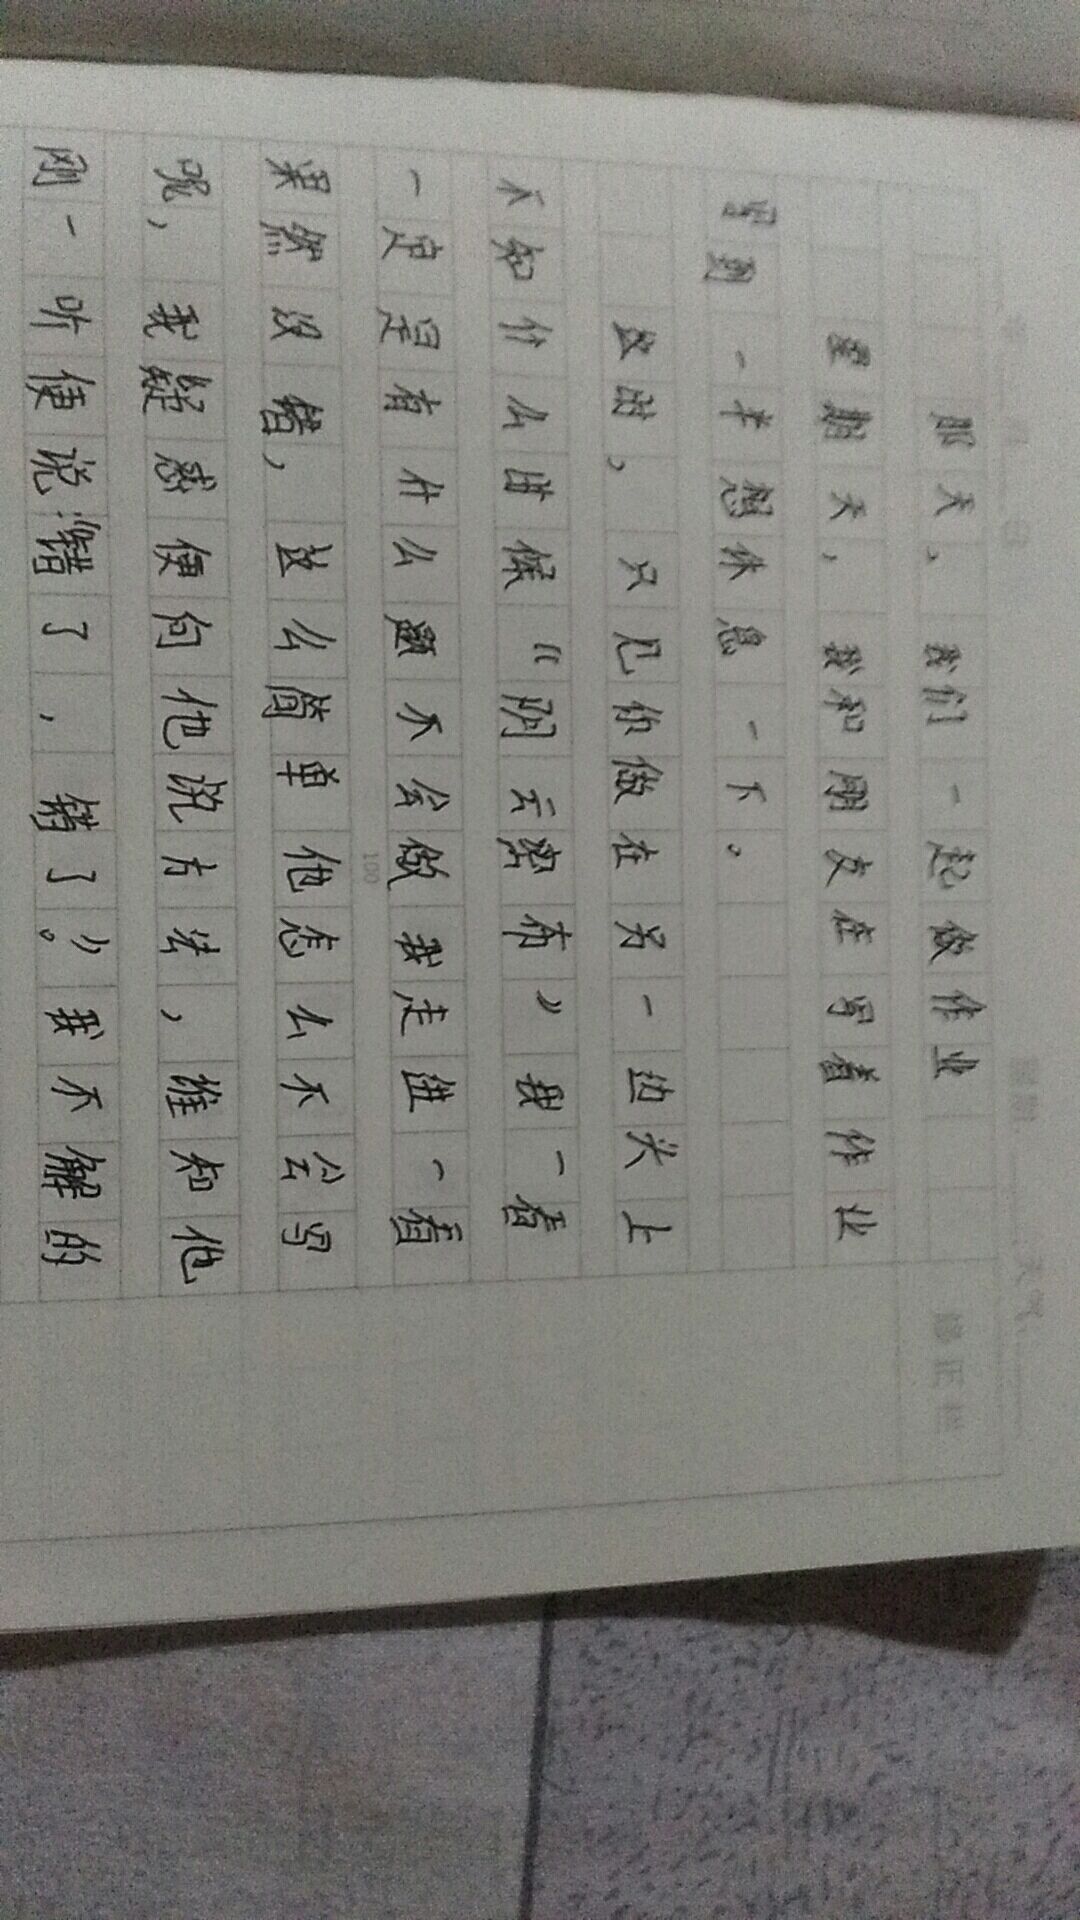 那天，我们一起做作业
星期天，我和朋友在写着作业
写到一半想休息一下。
这时，只见你做在另一边头上
不知什么时候“阴云密布”我一看
一定是有什么题不会做我走进一看
果然没错，这么简单他怎么不会写
呢，我疑惑便向他说方法，谁知他
刚一听便说错了，错了”。我不解的